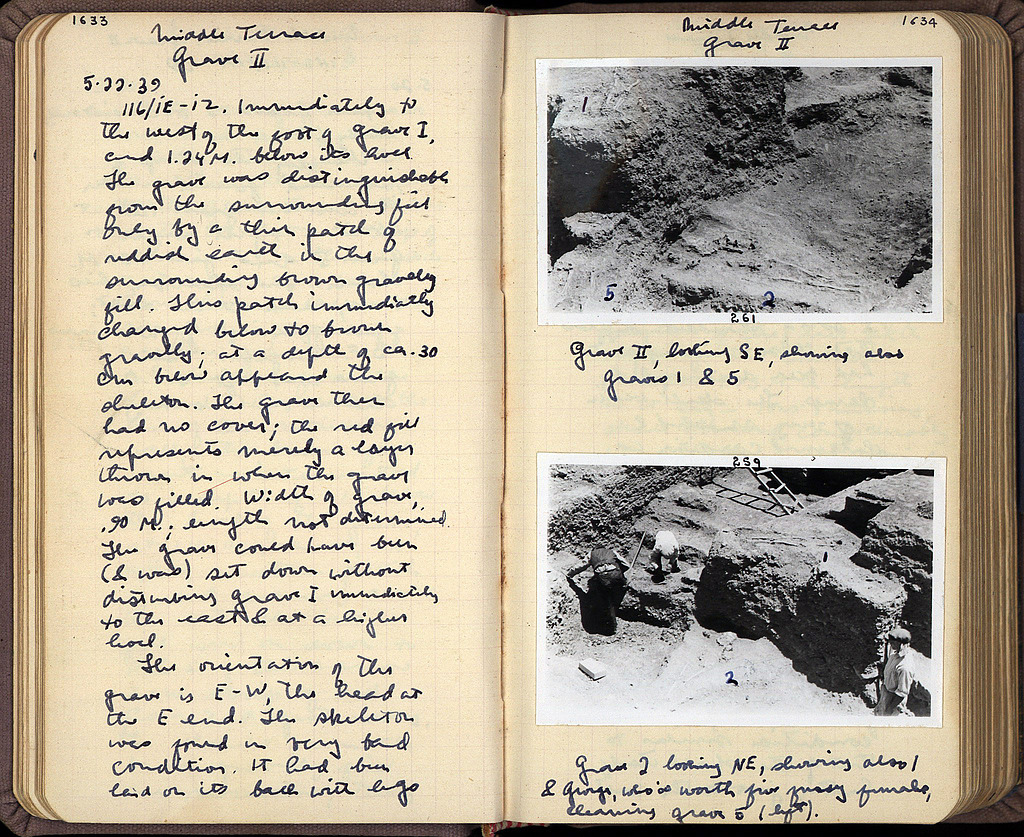 1633
Middle Terrace
Grave II
5·22·39
116/IE-12. Immediately to
the west of the foot of grave I,
and 1.24 M. below its level.
The grave was distinguishable
from the surrounding fill
only by a thin patch of
reddish earth in the
surrounding brown gravelly
fill. This patch immediately
changed below to brown
gravelly; at a depth of ca. 30
cm below appeared the
skeleton. The grave then
had no cover; the red fill
represents merely a layer
thrown in when the grave
was filled. Width of grave,
.90 M.; length not determined.
The grave could have been
(& was) set down without
disturbing grave I immediately
to the east & at a higher
level.
The orientation of the
grave is E-W, the head at
the E end. The skeleton
was found in very bad
condition. It had been
laid on its back with legs
1634
Middle Terrace
Grave II
1
5
2
261
Grave II, looking SE, showing also
graves 1 & 5
259
1
2
Grave 2 looking NE, showing also 1
& George, who's worth five fussy females,
cleaning grave 5 (left).